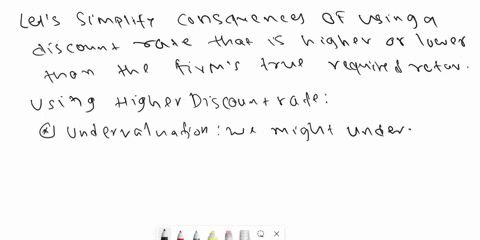 Let's simplify consquences of using a
discount rate that is higher or lower
than the firm's true required retur.
Using Higher Discount rate:
(a) Undervaluation: we might under.